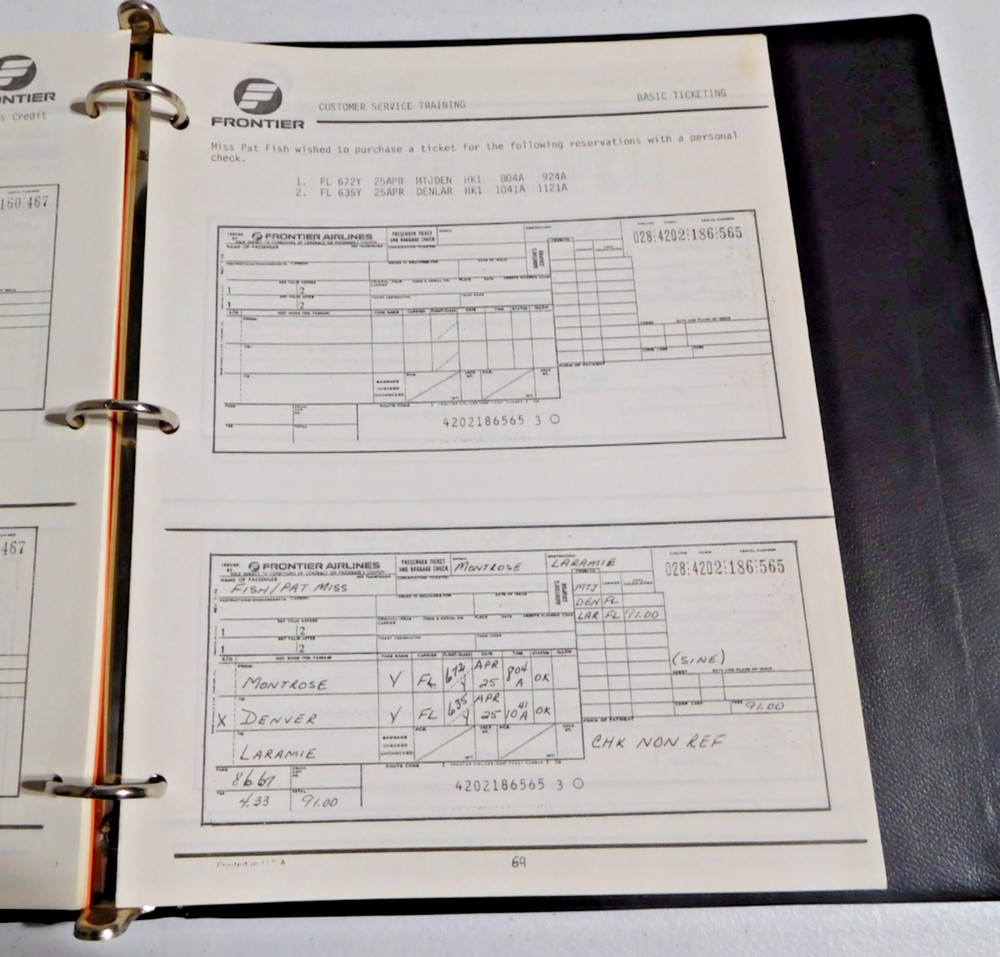 NTIER
s Credit
160:467
467
FRONTIER
CUSTOMER SERVICE TRAINING
BASIC TICKETING
Miss Pat Fish wished to purchase a ticket for the following reservations with a personal
check.
1. FL 672Y 25APR MTJDEN HK1 804A 924A
2. FL 635Y 25APR DENLAR HK1 1041A 1121A
FRONTIER AIRLINES
PASSENGER TICKET
AND BAGGAGE CHECK
028:4202:186:565
NAME OF PASSENGER
1 2
1 2
FROM
TO
TO
FORM OF PAYMENT
ROUTE CODE
4202186565 3
FRONTIER AIRLINES
PASSENGER TICKET
AND BAGGAGE CHECK
MONTROSE
LARAMIE
028:4202:186:565
NAME OF PASSENGER
FISH/PAT MISS
MTJ
DEN FL
LAR FL 91.00
1 2
1 2
(SINE)
FROM
MONTROSE Y FL 672 Y APR 25 804 A OK
TO
X DENVER Y FL 635 Y APR 25 1041 A OK
91.00
TO
LARAMIE
FORM OF PAYMENT
CHK NON REF
86.67
4.33 91.00
ROUTE CODE
4202186565 3
Printed in U.S.A.
69